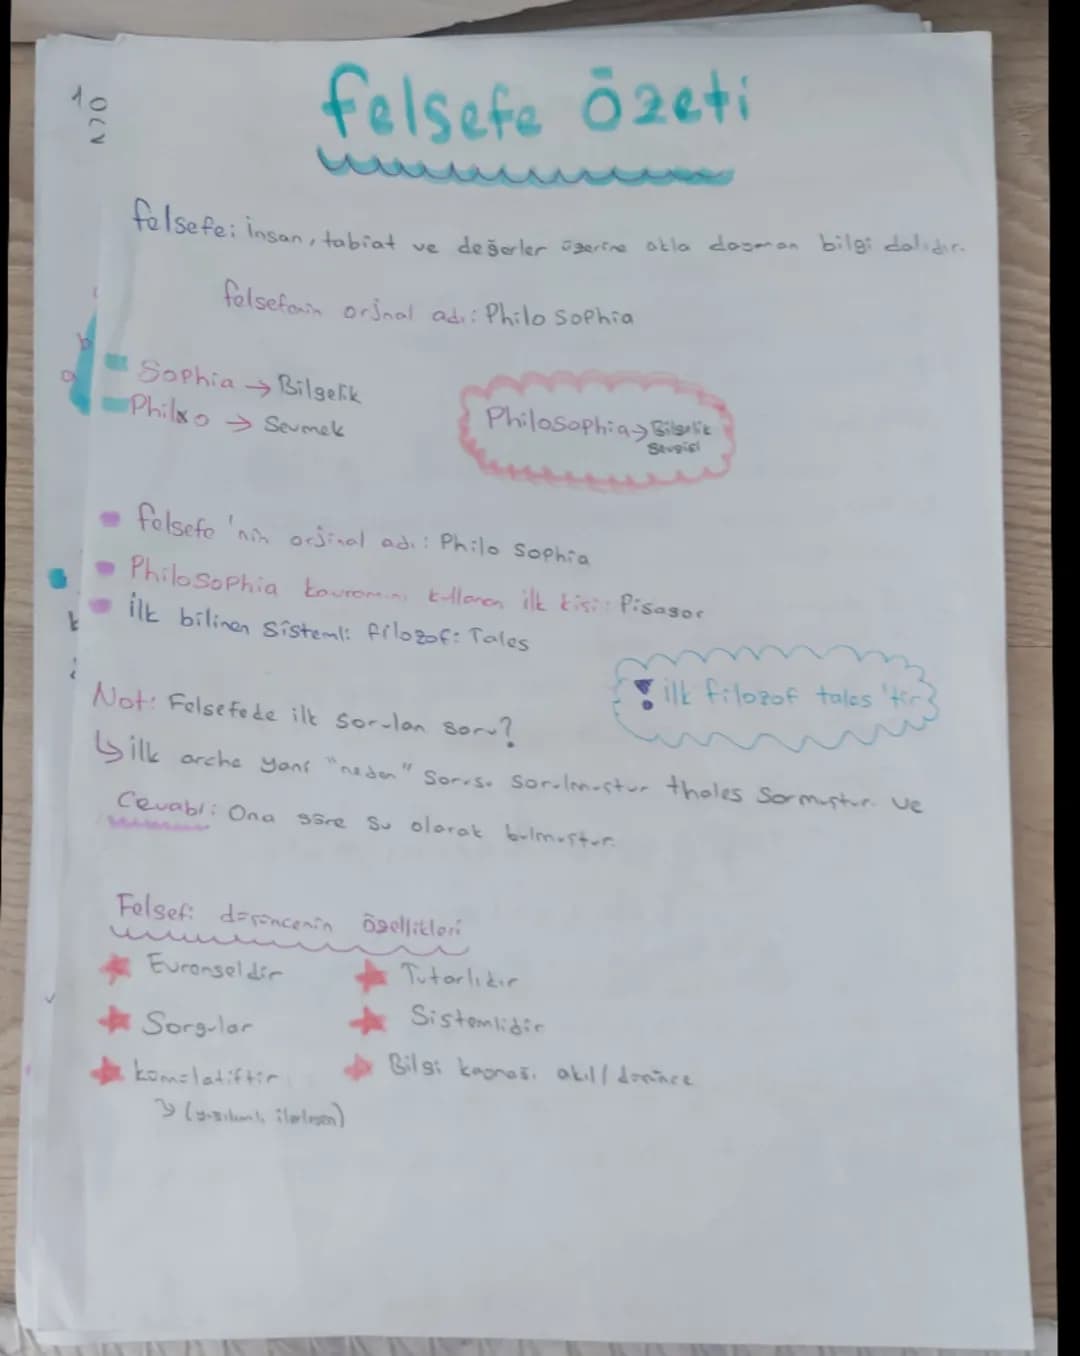 felsefe özeti
felsefe: insan, tabiat ve değerler üzerine akla dayanan bilgi dalıdır.
felsefenin orjnal adı: Philo Sophia
Sophia → Bilgelik
Philo → Sevmek
Philosophia → Bilgelik
Sevgisi
felsefe 'nin orjinal adı: Philo Sophia
Philosophia kavramını kullanan ilk kişi: Pisagor
ilk bilinen Sistemli filozof: Tales
! ilk filozof tales 'tir
Not: Felsefede ilk sorulan soru?
↳ ilk arche yani "neden" Sorusu sorulmuştur thales Sormuştur. ve
Cevabı: Ona göre Su olarak bulmuştur.
Felsefi düşüncenin özellikleri
Evrenseldir
Tutarlıdır
Sorgular
Sistemlidir
kümülatiftir
Bilgi kaynağı akıl / düşünce
(yığılımlı ilerleyen)